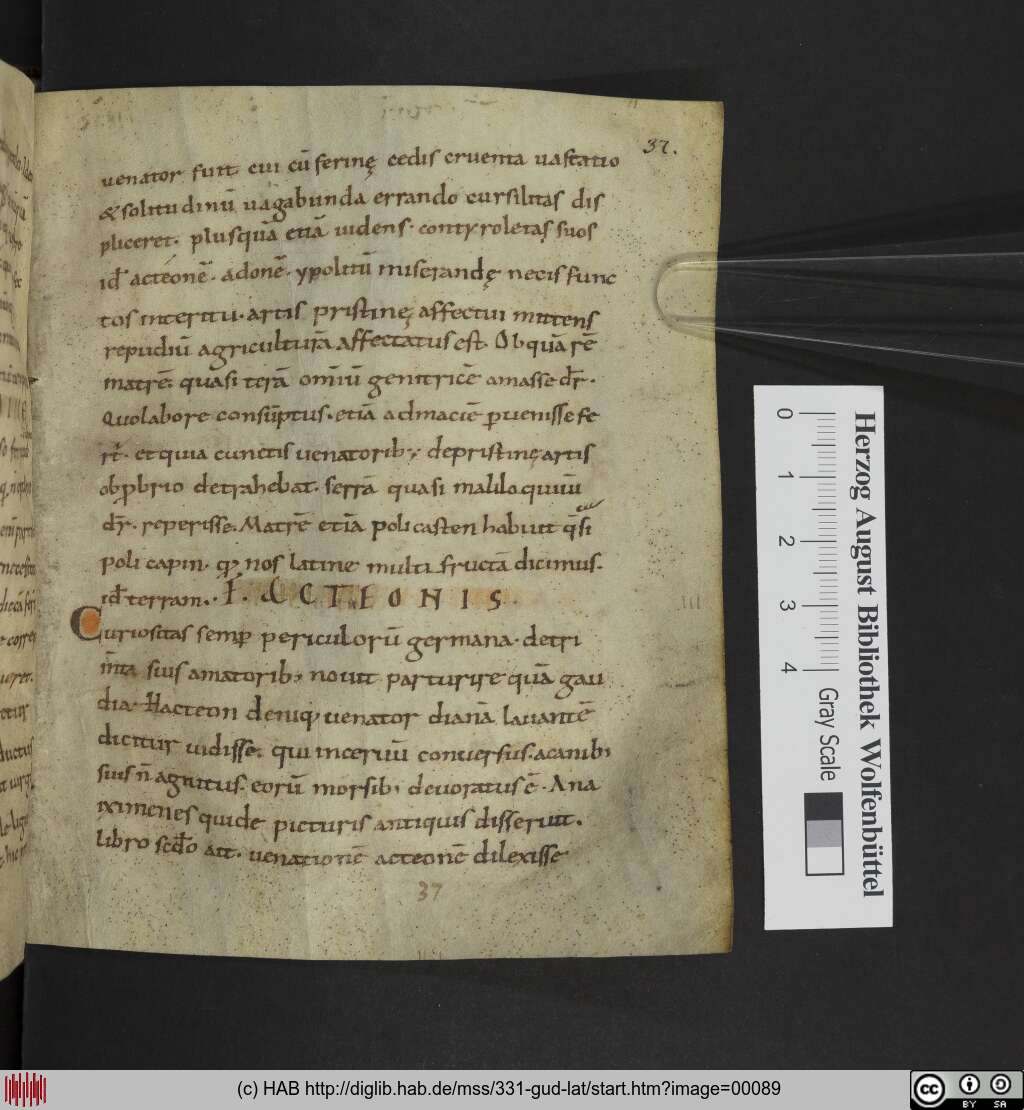 37.
uenator fuit. cui cū ferinę cedis cruenta uastatio
& solitudinū uagabunda errando cursilitas dis
pliceret. plusquā etiā uidens. contyroletas suos
id̄ acteonē. adonē. ypolitū miserandę necis func
tos interitu. artis pristinę affectui mittens
repudiū agriculturā affectatus est. Ob quā rē
matrē. quasi terā omīū genitricē amasse dr̄.
Quo labore consūptus. etiā ad maciē puenisse fe
rt̄. et quia cunctis uenatorib; de pristinę artis
obprbrio detrahebat. serrā quasi maliloquiuū
dr̄. reperisse. Matrē etiā policasten habuit q̄si
policapin. qđ nos latine multi fructā dicimus.
id̄ terram. F. ACTEONIS.
Curiositas semp periculorū germana. detri
m̄ta suis amatorib; nouit parturire quā gau
dia. Hacteon deniq; uenator dianā lauantē
dicitur uidisse. qui in ceruū conuersus. a canibꝰ
suis n̄ agnitus. eorū morsib; deuoratus ē. Ana
iximenes qui de picturis antiquis disseruit.
libro scd̄o ait. uenationē acteonē dilexisse
37
0 1 2 3 4
Gray Scale
Herzog August Bibliothek Wolfenbüttel
(c) HAB http://diglib.hab.de/mss/331-gud-lat/start.htm?image=00089
cc BY SA